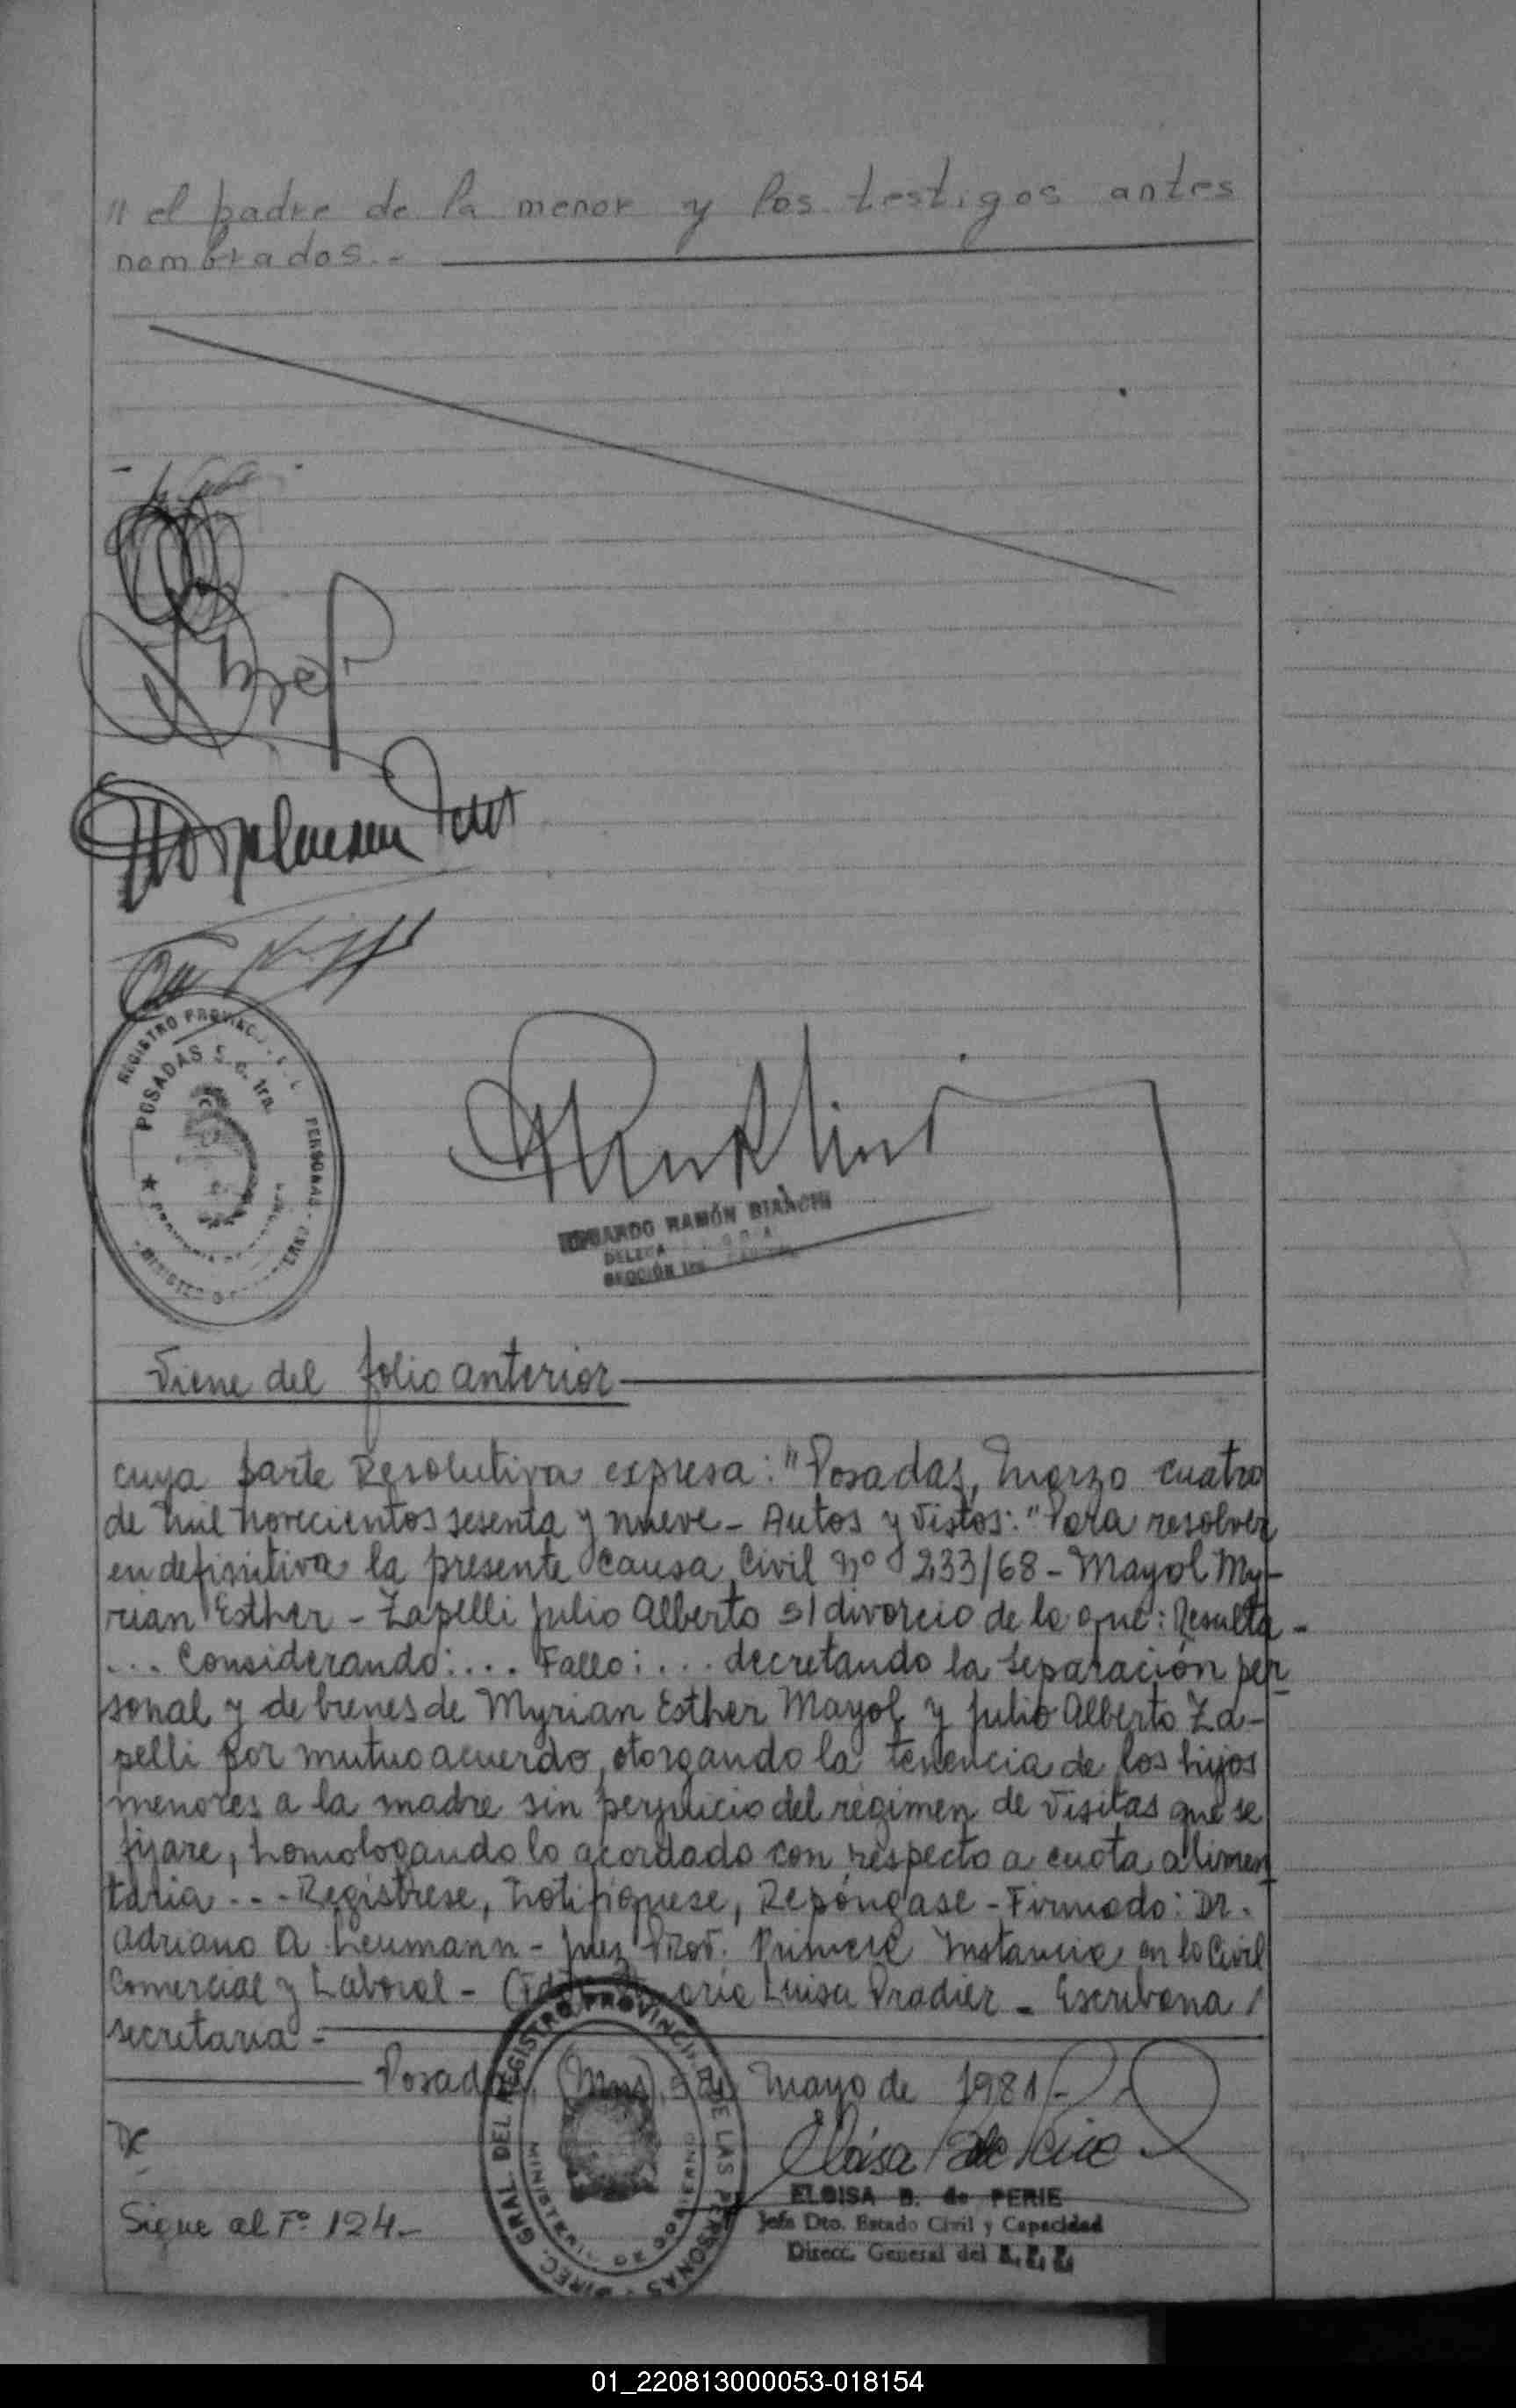 " el padre de la menor y los testigos antes
nombrados.-
REGISTRO PROVINC
PERSONAS
POSADAS S. C. 1ra.
EDUARDO RAMÓN BIANCHI
SECCIÓN 1ra.
Viene del folio anterior
cuya parte Resolutiva expresa: "Posadas, Marzo cuatro
de mil novecientos sesenta y nueve - Autos y Vistos: "Para resolver
en definitiva la presente causa Civil Nº 233/68 - Mayol My-
rian Esther - Zapelli Julio Alberto s/ divorcio de la que: Resulta -
... Considerando:.... Fallo: ... decretando la separación per
sonal y de bienes de Myrian Esther Mayol y Julio Alberto Za-
pelli por mutuo acuerdo, otorgando la tenencia de los hijos
menores a la madre sin perjuicio del régimen de visitas que se
fijare, homologando lo acordado con respecto a cuota alimen
taria ... - Regístrese, Notifíquese, Repóngase - Firmado: Dr.
Adriano A. Neumann - Juez Prov. Primera Instancia en lo Civil
Comercial y Laboral - María Luisa Pradier - Escribana /
secretaria -
Posadas, (Mnes), 5 de mayo de 1981 -
DIREC. GRAL. DEL REGISTRO PROVINCIAL DE LAS PERSONAS
MINISTERIO DE GOBIERNO
ELOISA B. de PERIE
Jefa Dto. Estado Civil y Capacidad
Direcc. General del
Sigue al Fº 124.-
01_220813000053-018154